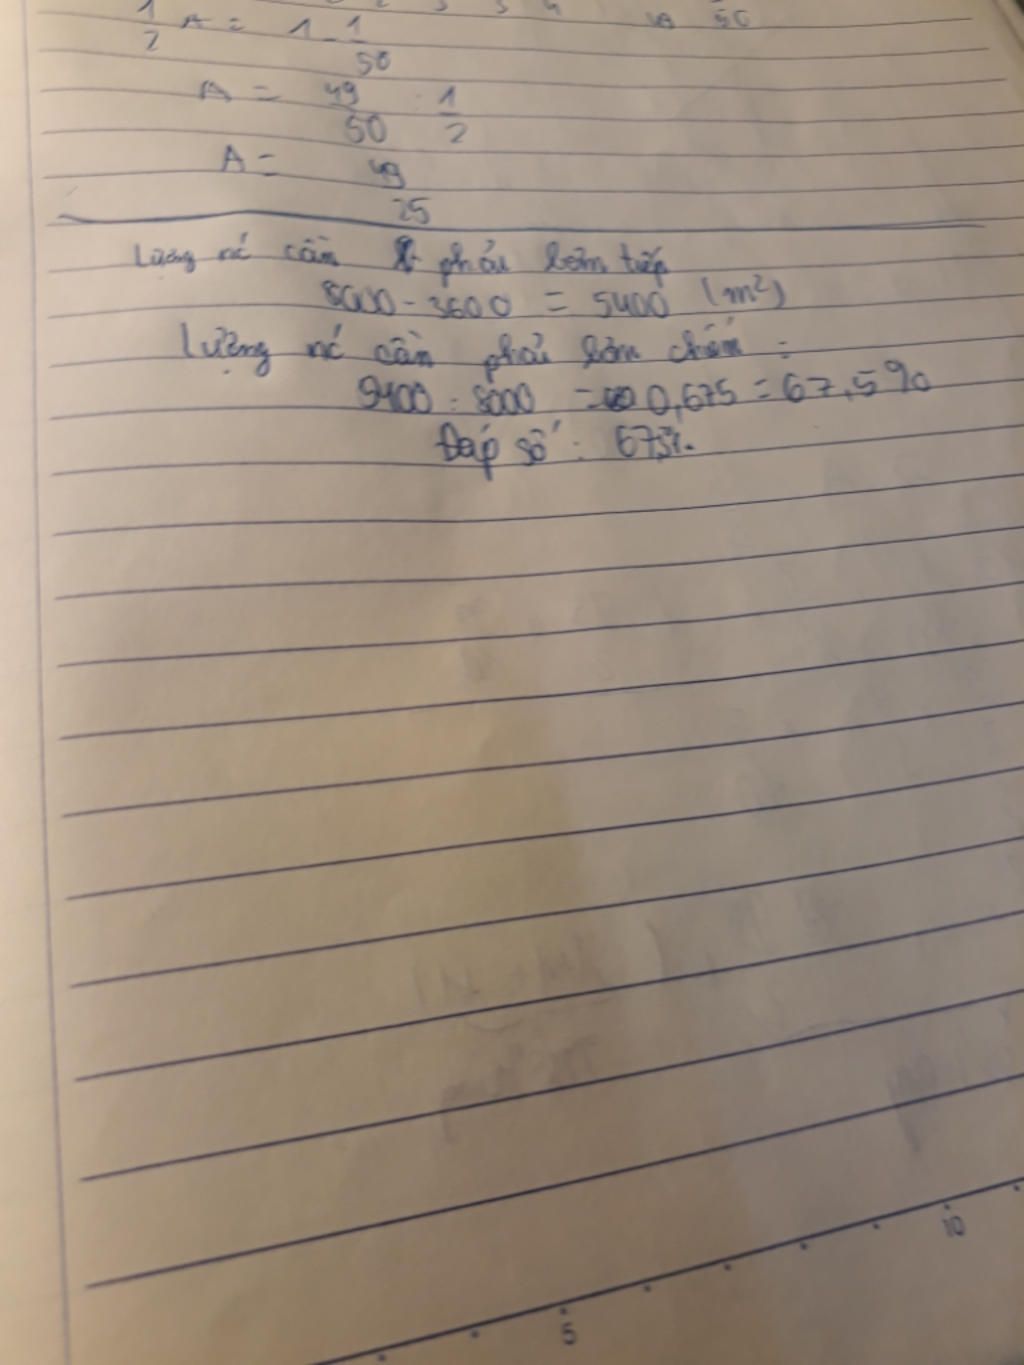 1/2 A = 1 - 1/50
A = 49/50 : 1/2
A = 49/25
Lượng nc cần phải bơm tiếp
8000 - 3600 = 5400 (m²)
Lượng nc cần phải bơm chiếm :
5400 : 8000 = 0,675 = 67,5%
Đáp số : 67,5%.
5
10